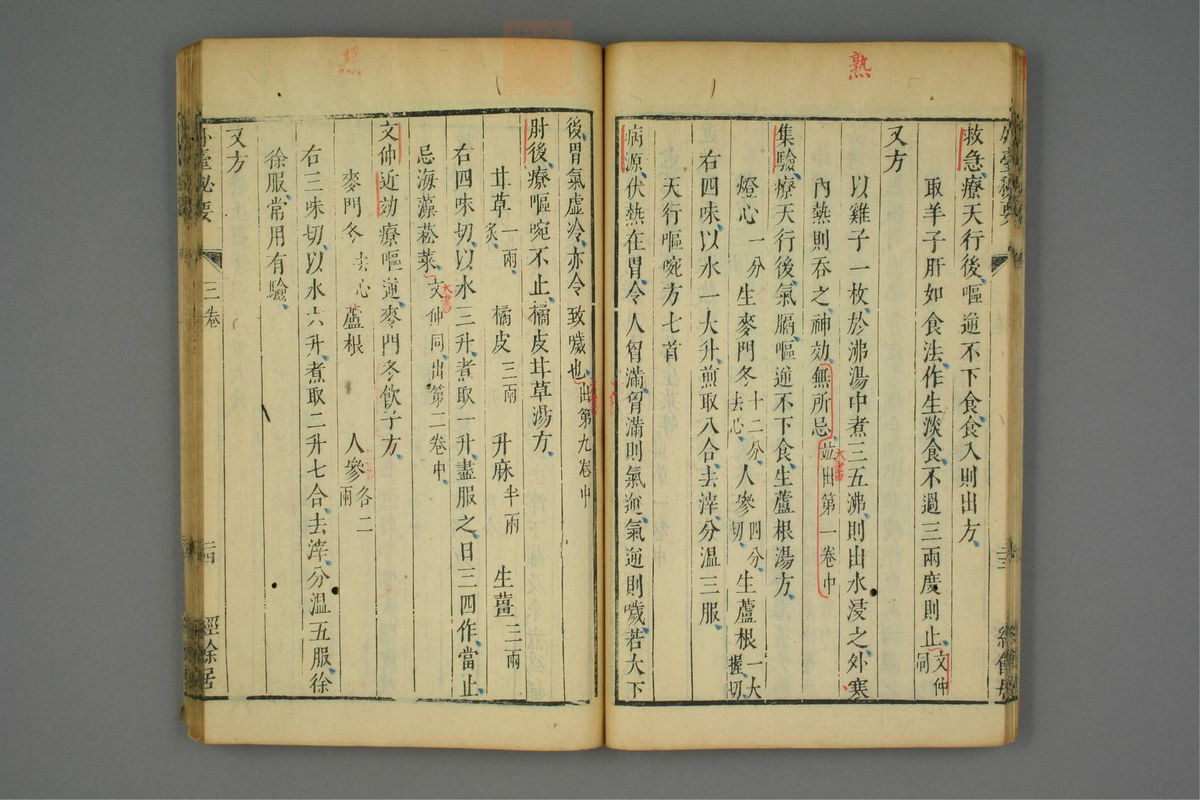 熟
救急療天行後嘔逆不下食食入則出方
取羊子肝如食法作生淡食不過三兩度則止文仲同
又方
以雞子一枚於沸湯中煮三五沸則出水浸之外寒
內熱則吞之神効無所忌並出第一卷中
大書
集驗療天行後氣膈嘔逆不下食生蘆根湯方
燈心一分 生麥門冬十二分去心 人參四分切 生蘆根一大握切
右四味以水一大升煎取八合去滓分溫三服
天行嘔啘方七首
病源伏熱在胃令人胷滿胷滿則氣逆氣逆則噦若大下
後胃氣虛冷亦令致噦也出第九卷中
肘後療嘔啘不止橘皮甘草湯方
甘草一兩炙 橘皮三兩 升麻半兩 生薑三兩
右四味切以水三升煮取一升盡服之日三四作當止
忌海藻菘菜文仲同出第二卷中
大書
文仲近効療嘔逆麥門冬飲子方
麥門冬去心 蘆根 人參各二兩
右三味切以水六升煮取二升七合去滓分溫五服徐
徐服常用有驗
又方
外臺秘要 三卷 二四 經餘居